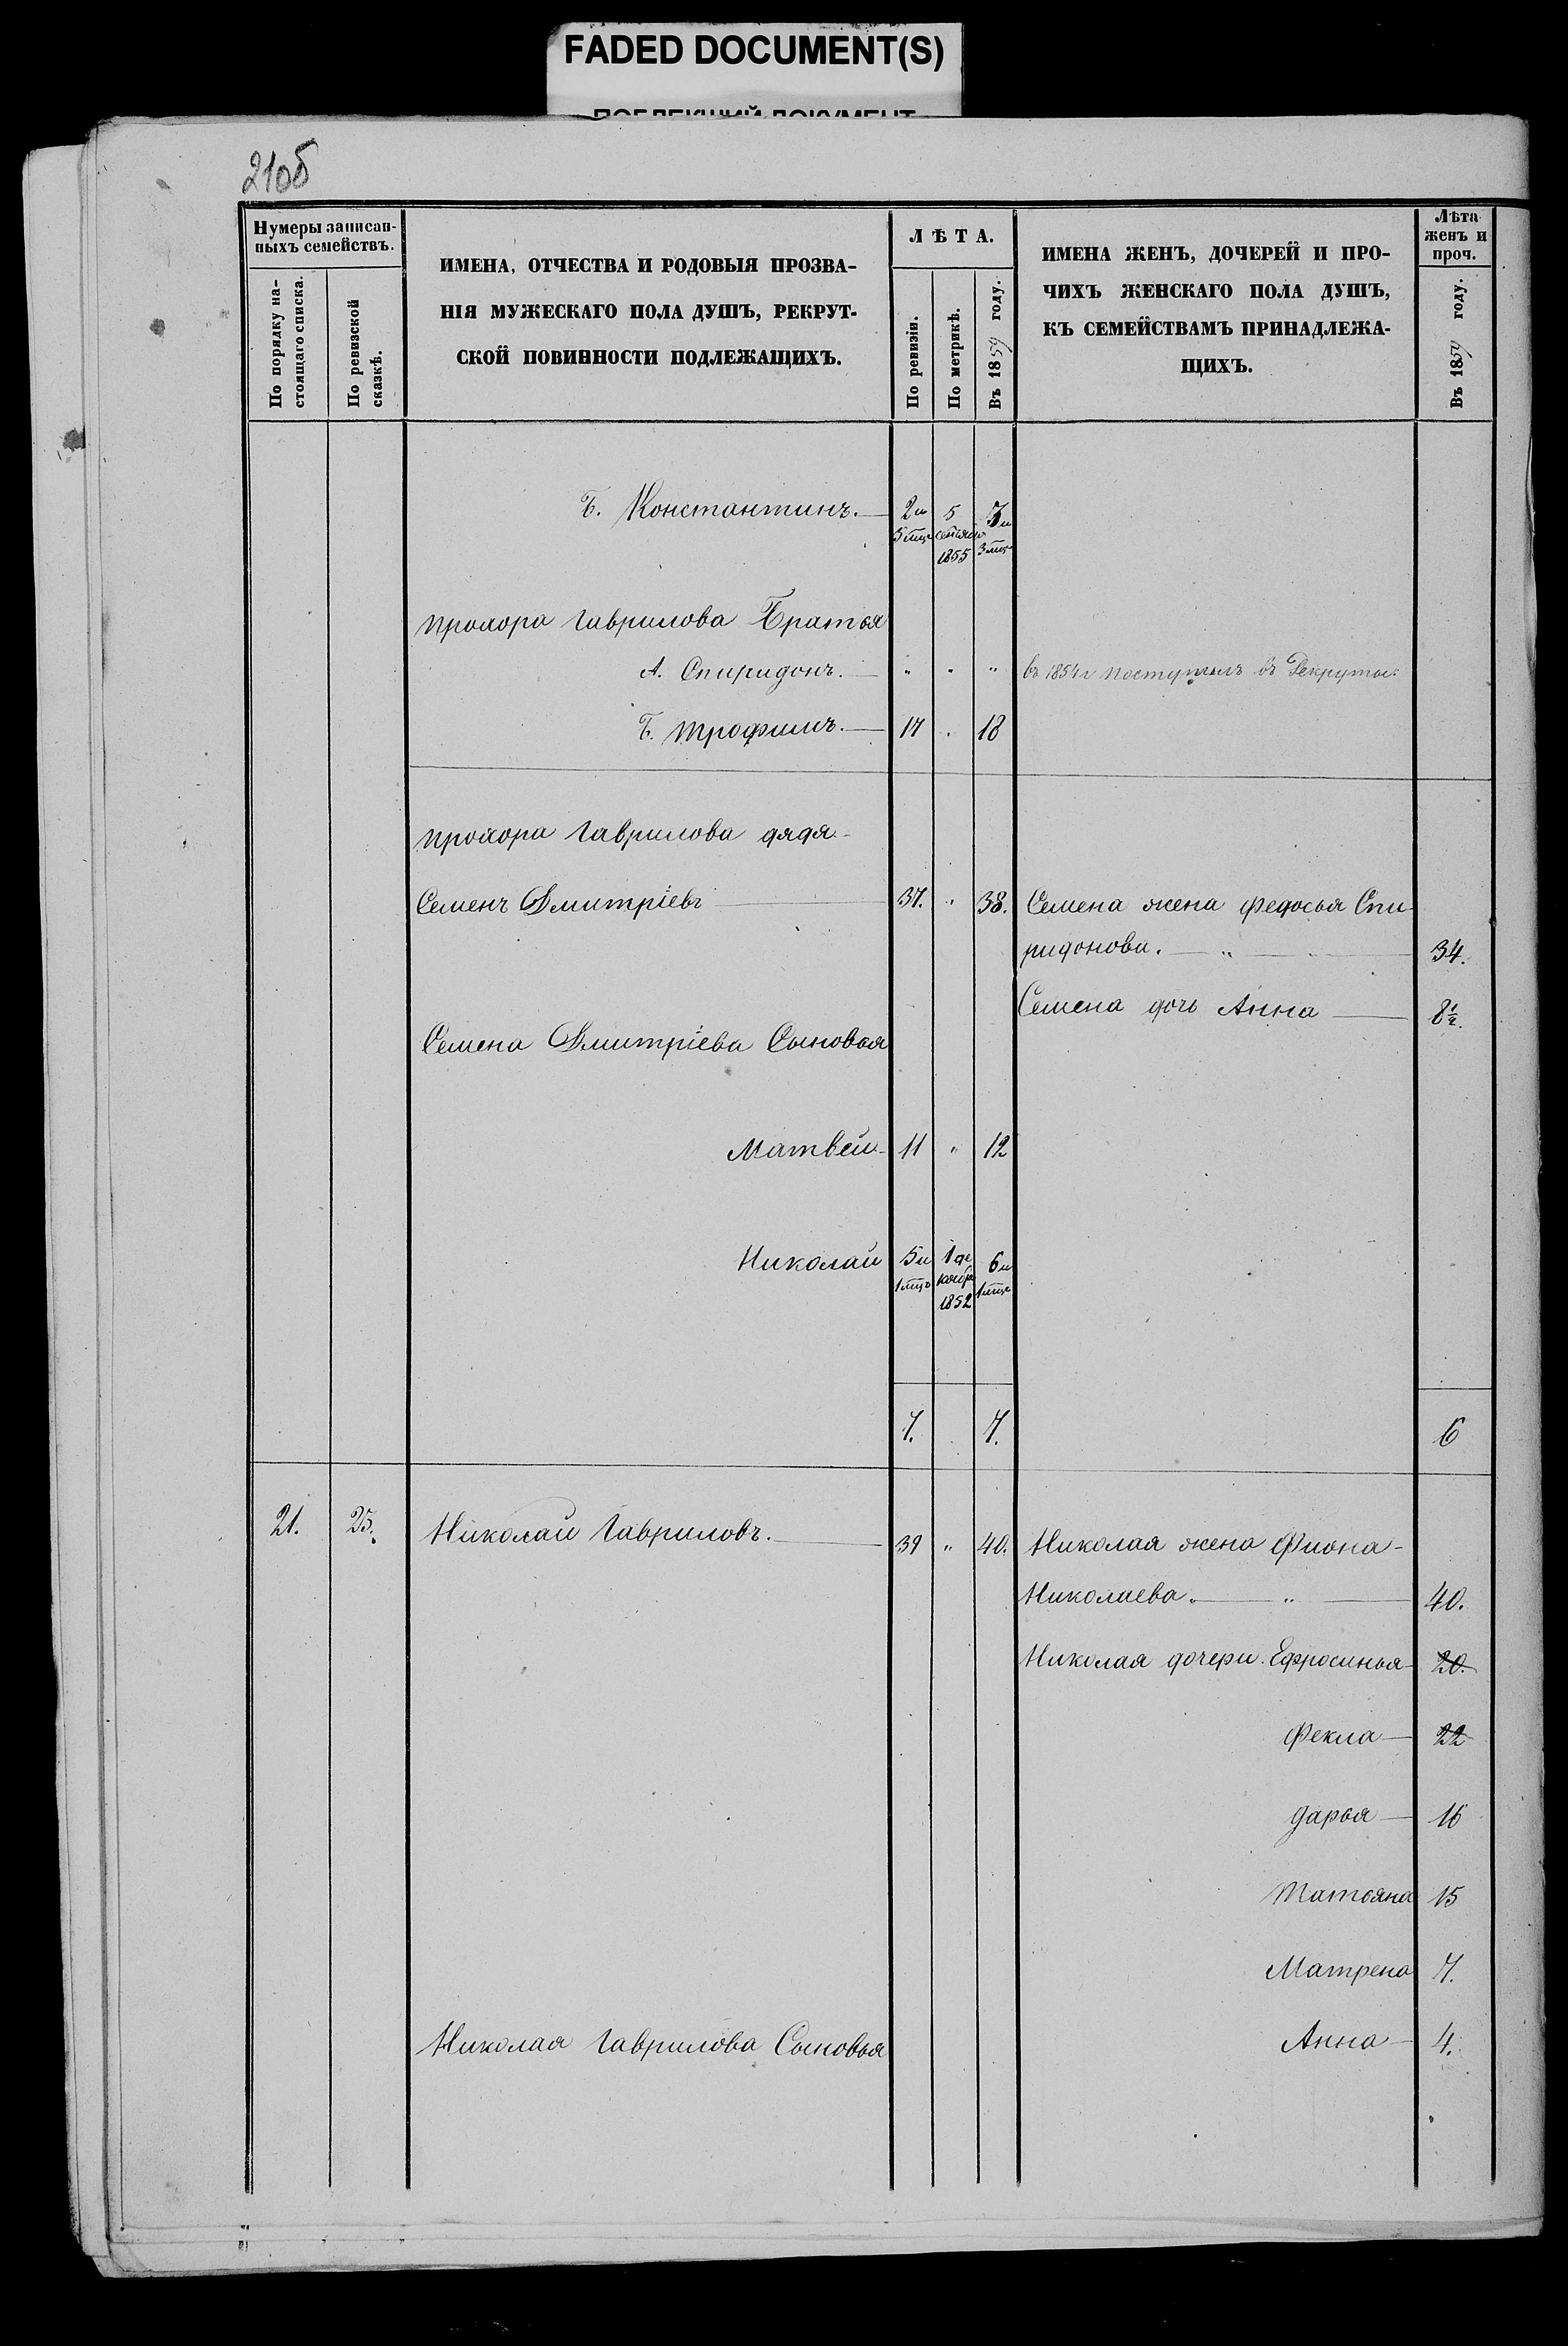 FADED DOCUMENT(S)
210б
Нумеры записан-
ныхъ семействъ.
По порядку на-
стоящаго списка.
По ревизской
сказкѣ.
ИМЕНА, ОТЧЕСТВА И РОДОВЫЯ ПРОЗВА-
НІЯ МУЖЕСКАГО ПОЛА ДУШЪ, РЕКРУТ-
СКОЙ ПОВИННОСТИ ПОДЛЕЖАЩИХЪ.
ЛѢТА.
По ревизіи.
По метрикѣ.
Въ 1859 году.
ИМЕНА ЖЕНЪ, ДОЧЕРЕЙ И ПРО-
ЧИХЪ ЖЕНСКАГО ПОЛА ДУШЪ,
КЪ СЕМЕЙСТВАМЪ ПРИНАДЛЕЖА-
ЩИХЪ.
Лѣта
женъ и
проч.
Въ 1859 году.
Б. Константинъ. — 2 и 5 3 и
5 мцъ сентября 3 мцъ
1855
Прохора Гаврилова Братья
А. Спиридонъ. — " " " въ 1854 г поступилъ въ Рекруты.
Б. Трофимъ. — 17 . 18
Прохора Гаврилова дядя
Семенъ Дмитріевъ — 37. " 38. Семена жена Федосья Спи
ридонова. — " — 34.
Семена дочь Анна — 8½.
Семена Дмитріева Сыновья
Матвей 11 " 12
Николай 5 и 1 де 6 и
1 мцъ кабря 1 мцъ
1852
7. 7. 6
21. 25. Николай Гавриловъ. — 39 " 40. Николая жена Фиона
Николаева. — " — 40.
Николая дочери. Ефросинья 20.
Фекла — 22
Дарья — 16
Татьяна 15
Матрена 7.
Николая Гаврилова Сыновья Анна — 4.